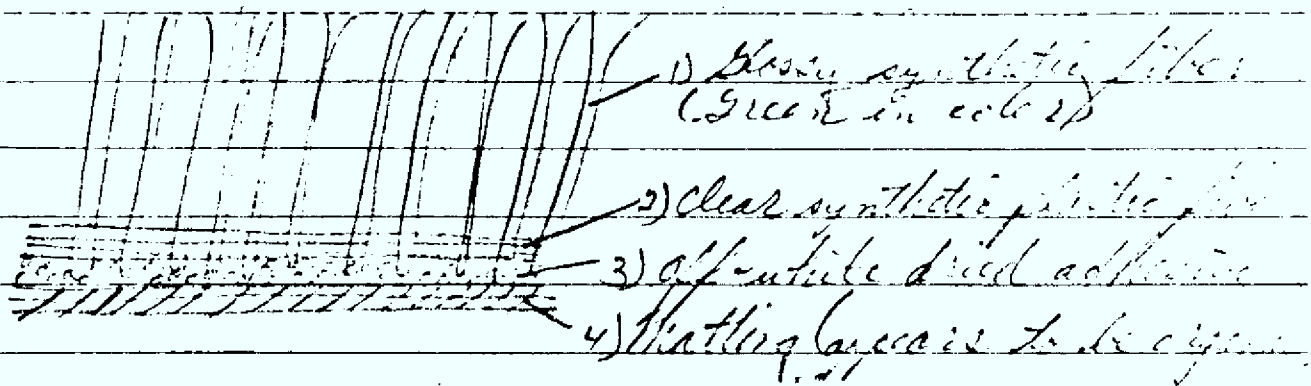 1) Glossy synthetic fiber
(Green in color)
2) Clear synthetic plastic
3) Off-white dried adhesive
4) Matting (appears to be